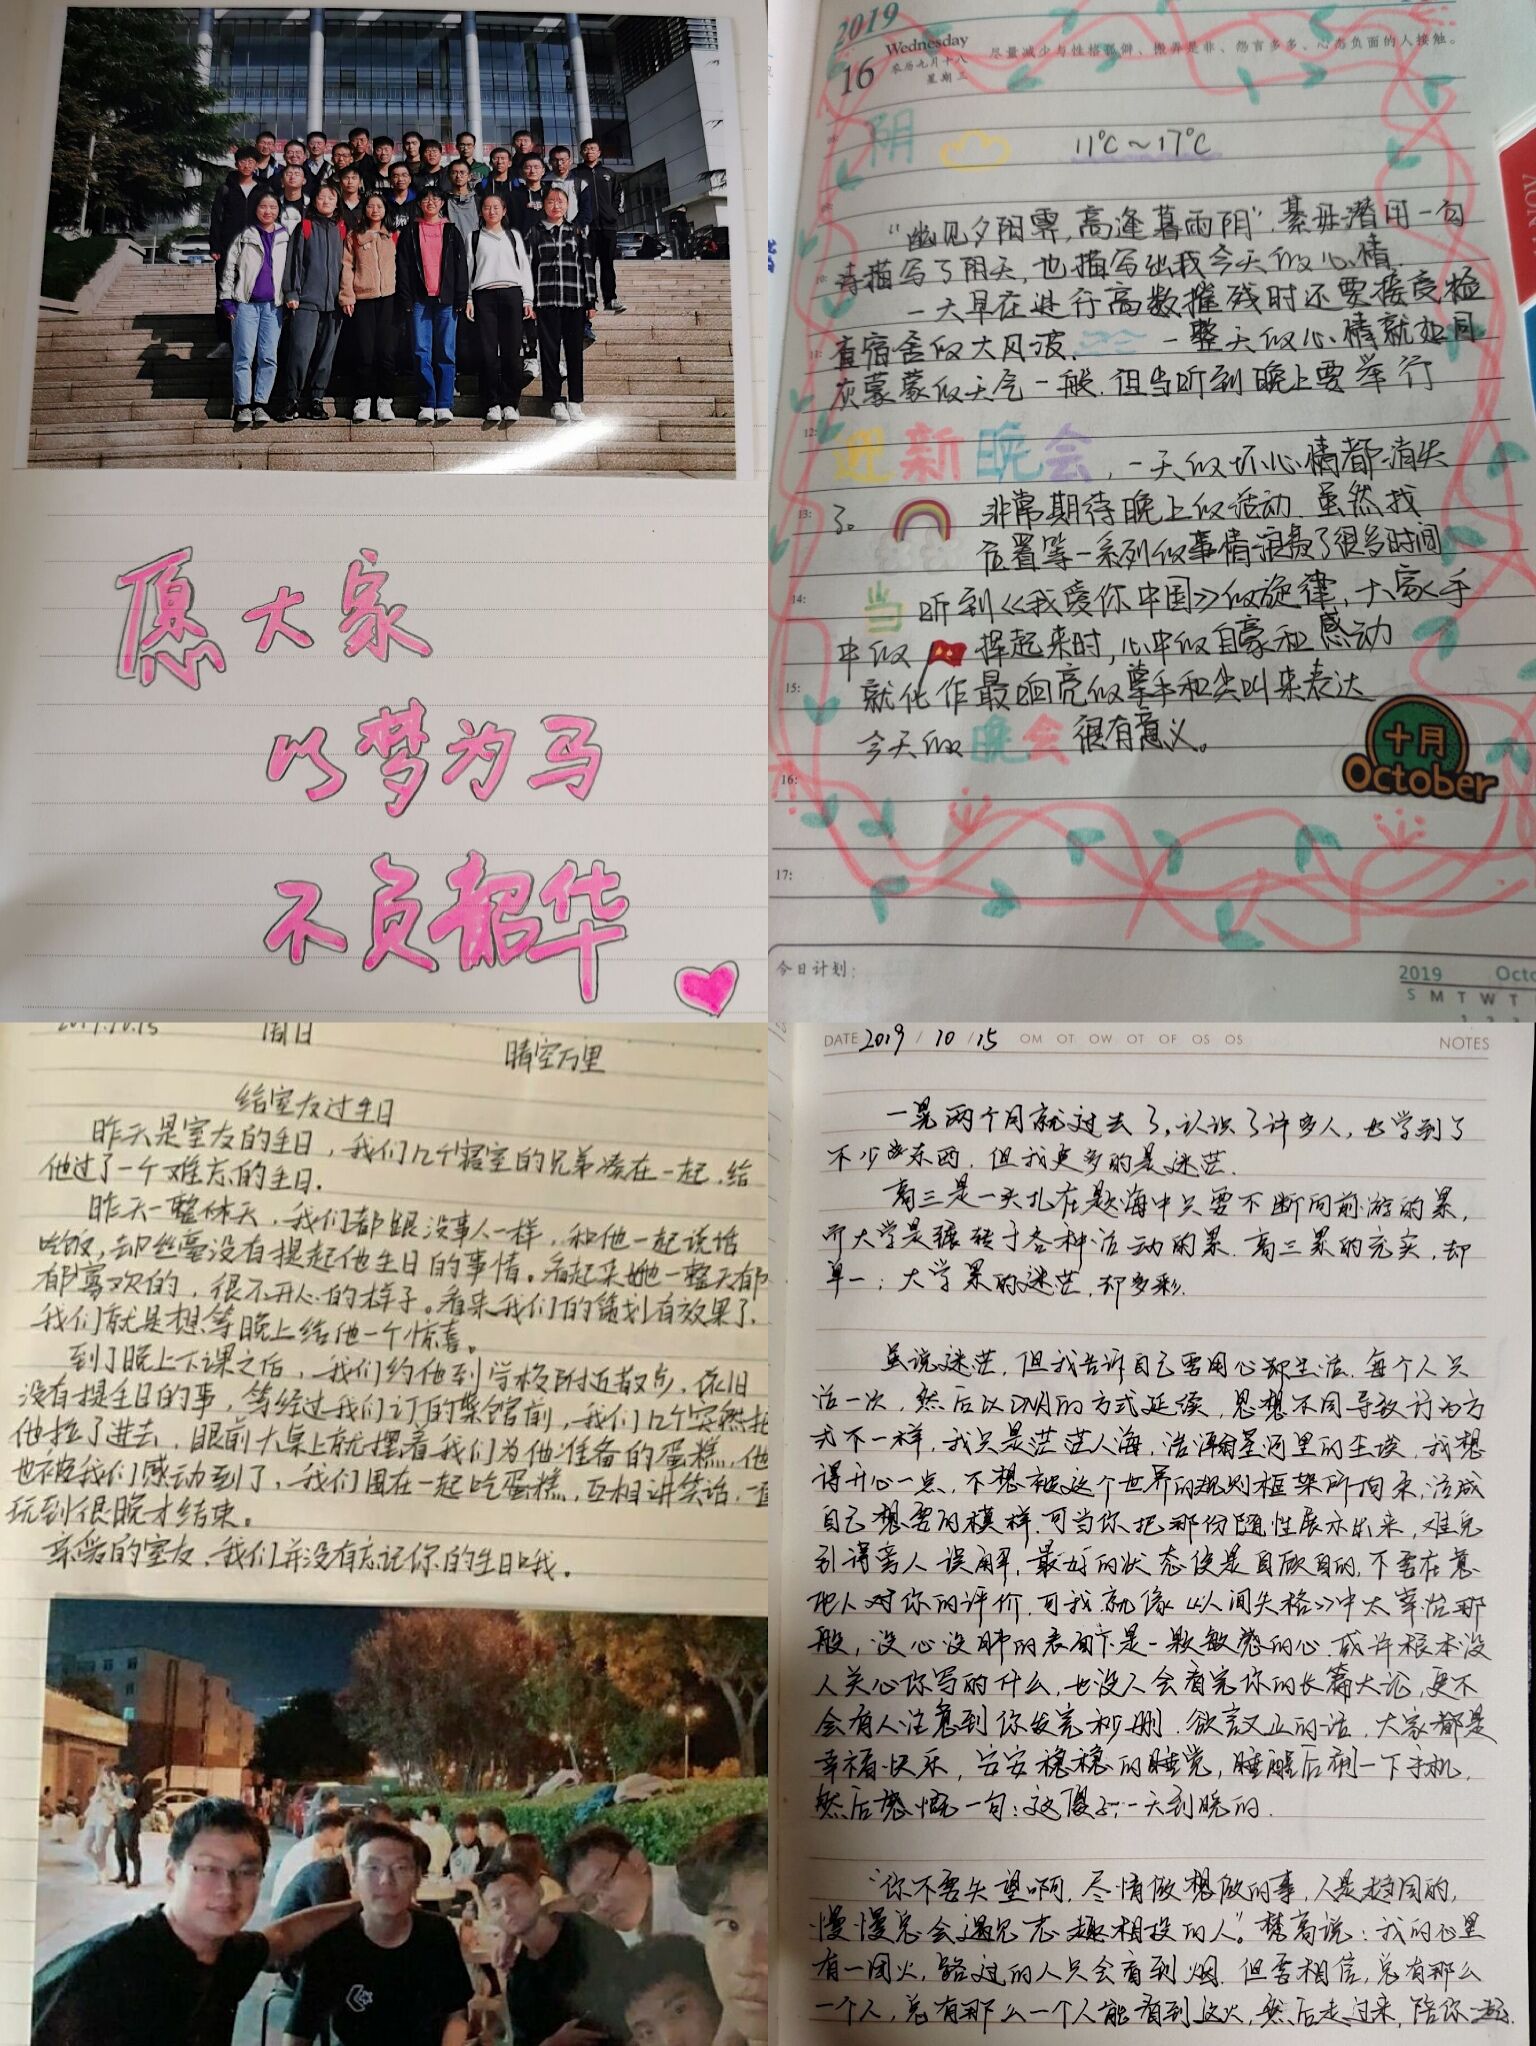 愿大家
以梦为马
不负韶华
2019
Wednesday
16
农历九月十八
星期三
尽量减少与性格孤僻、搬弄是非、怨言多多、心态负面的人接触。
阴
11℃~17℃
“幽见夕阳霁,高逢暮雨阴”.綦毋潜用一句
诗描写了阴天,也描写出我今天的心情.
一大早在进行高数摧残时还要接受检
查宿舍的大风波. 一整天的心情就如同
灰蒙蒙的天气一般.但当听到晚上要举行
迎新晚会,一天的坏心情都消失
了。 非常期待晚上的活动.虽然找
位置等一系列的事情浪费了很多时间
当听到《我爱你中国》的旋律,大家手
中的 挥起来时,心中的自豪和感动
就化作最响亮的掌声和尖叫来表达
今天的晚会很有意义。
十月
October
11:
12:
13:
14:
15:
16:
17:
今日计划:
2019 Octo
S M T W T
2019.10.13 周日
晴空万里
给室友过生日
昨天是室友的生日,我们几个寝室的兄弟凑在一起,给
他过了一个难忘的生日.
昨天一整休天,我们都跟没事人一样,和他一起说话
吃饭,却丝毫没有提起他生日的事情。看起来她一整天都
郁寡欢的,很不开心的样子。看来我们的策划有效果了.
我们就是想等晚上给他一个惊喜。
到了晚上下课之后,我们约他到学校附近散步,依旧
没有提生日的事,等经过我们订的菜馆前,我们几个突然把
他拉了进去,眼前大桌上就摆着我们为他准备的蛋糕,他
也被我们感动到了,我们围在一起吃蛋糕,互相讲笑话,一直
玩到很晚才结束。
亲爱的室友,我们并没有忘记你的生日哦。
DATE 2019 / 10 / 15 OM OT OW OT OF OS OS NOTES
一晃两个月就过去了,认识了许多人,也学到了
不少的东西,但我更多的是迷茫.
高三是一头扎在题海中只要不断向前游的累,
而大学是辗转于各种活动的累.高三累的充实,却
单一;大学累的迷茫,却多彩.
虽说迷茫,但我告诉自己要用心却生活.每个人只
活一次,然后以DNA的方式延续,思想不同导致行为方
式不一样,我只是茫茫人海,浩瀚星河里的尘埃,我想
得开心一点,不想被这个世界的规则框架所拘束,活成
自己想要的模样.可当你把那份随性展示出来,难免
引得旁人误解,最好的状态便是自顾自的,不要在意
他人对你的评价.可我就像《人间失格》中太宰治那
般,没心没肺的表面下是一颗敏感的心.或许根本没
人关心你写的什么,也没人会看完你的长篇大论,更不
会有人注意到你发完秒删.欲言又止的话,大家都是
幸福快乐,安安稳稳的睡觉,睡醒后刷一下手机,
然后感慨一句:这傻子一天到晚的.
“你不要失望啊,尽情做想做的事,人是趋同的,
慢慢总会遇见志趣相投的人。”梵高说:我的心里
有一团火,路过的人只会看到烟.但要相信,总有那么
一个人,总有那么一个人能看到这火,然后走过来,陪你一起.